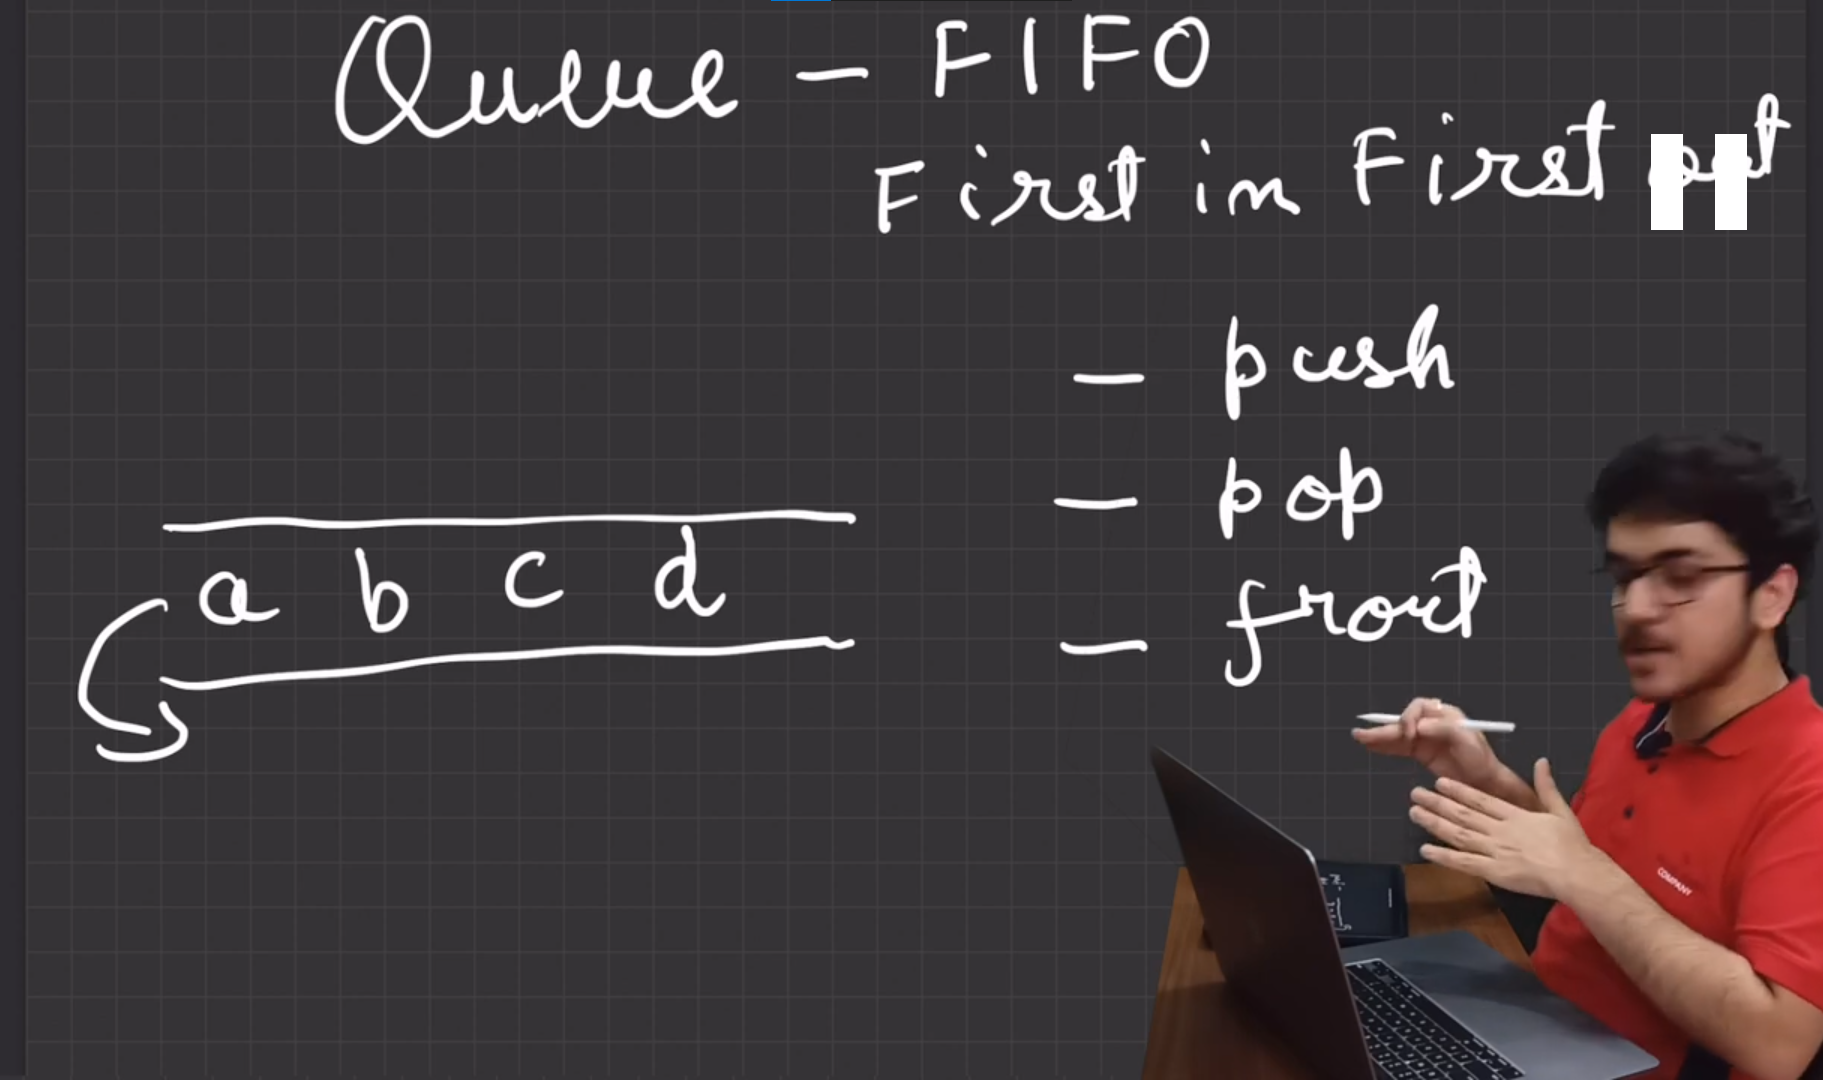 Queue - FIFO
First in First out
- push
- pop
- front
a b c d
COMPANY